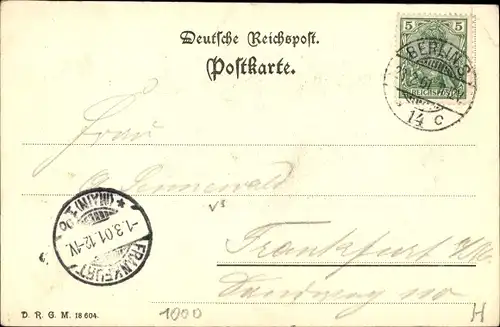 Deutsche Reichspost.
Postkarte.
5 5
REICHSPOST
BERLIN S
14 c
Frau
Frankfurt
Sandweg
FRANKFURT (MAIN) 1
-1.3.01.12-1V.
D. R. G. M. 18 604.
1000
H